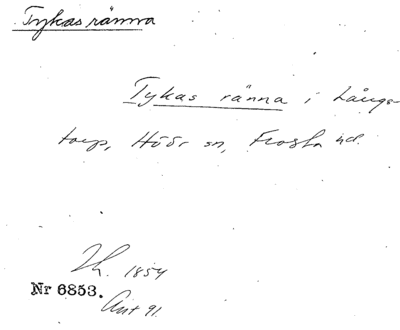 Tykas ränna
Tykas ränna i Långs-
torp, Höör sn, Frosta hd.
1854
Nr 6853.
Ant 91.